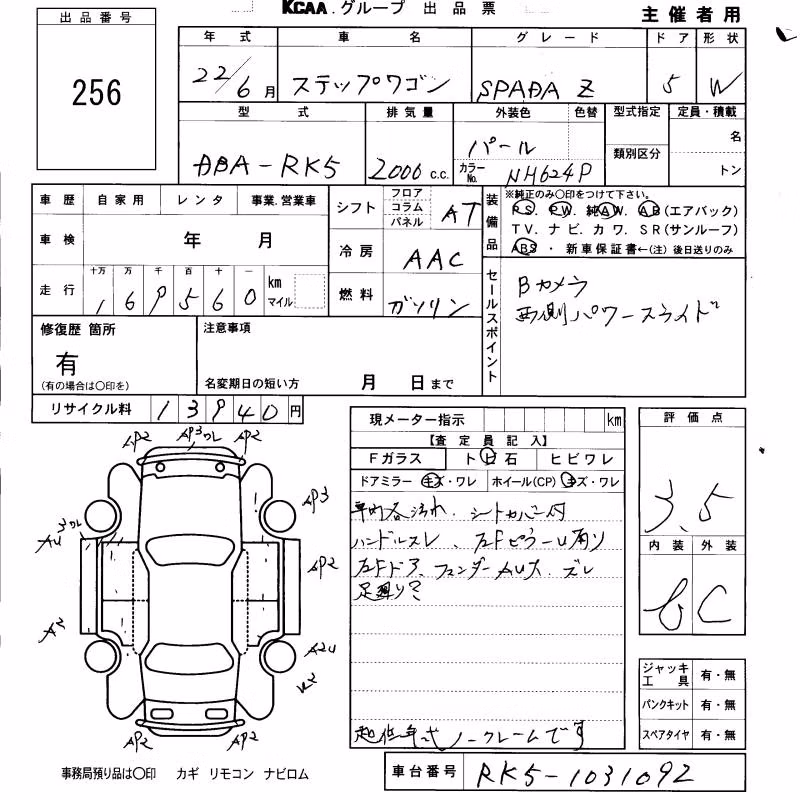 KCAA.グループ 出品票
主催者用
出品番号
256
年式 車名 グレード ドア 形状
22/6月 ステップワゴン SPADA Z 5 W
型式 排気量 外装色 色替 型式指定 定員・積載
DBA-RK5 2000 c.c. パール 名
カラーNo. NH624P 類別区分 トン
車歴 自家用 レンタ 事業.営業車
シフト フロア コラム パネル AT
装備品 ※純正のみ○印をつけて下さい。
PS. PW. 純AW. AB(エアバック)
TV. ナビ. カワ. SR(サンルーフ)
ABS・新車保証書←(注)後日送りのみ
車検 年 月
冷房 AAC
走行 十万 万 千 百 十 一 km マイル
169560
燃料 ガソリン
セールスポイント
Bカメラ
両側パワースライド
修復歴 箇所
有
(有の場合は○印を)
注意事項
名変期日の短い方 月 日まで
リサイクル料 13940円
現メーター指示 km
【査定員記入】
Fガラス ト ビ 石 ヒビワレ
ドアミラー キズ・ワレ ホイール(CP) キズ・ワレ
車内各汚れ、シートカバー付
ハンドルスレ、左FピラーU有り
左Fドア、フェンダーAU大、ズレ
足廻り?
超低年式ノークレームです
評価点
3.5
内装 外装
C
ジャッキ工具 有・無
パンクキット 有・無
スペアタイヤ 有・無
AP2 AP3ワレ AP2
AP3
AU3ワレ
AP2
A2
A2U
AP2 AP2
事務局預り品は○印 カギ リモコン ナビロム
車台番号 RK5-1031092